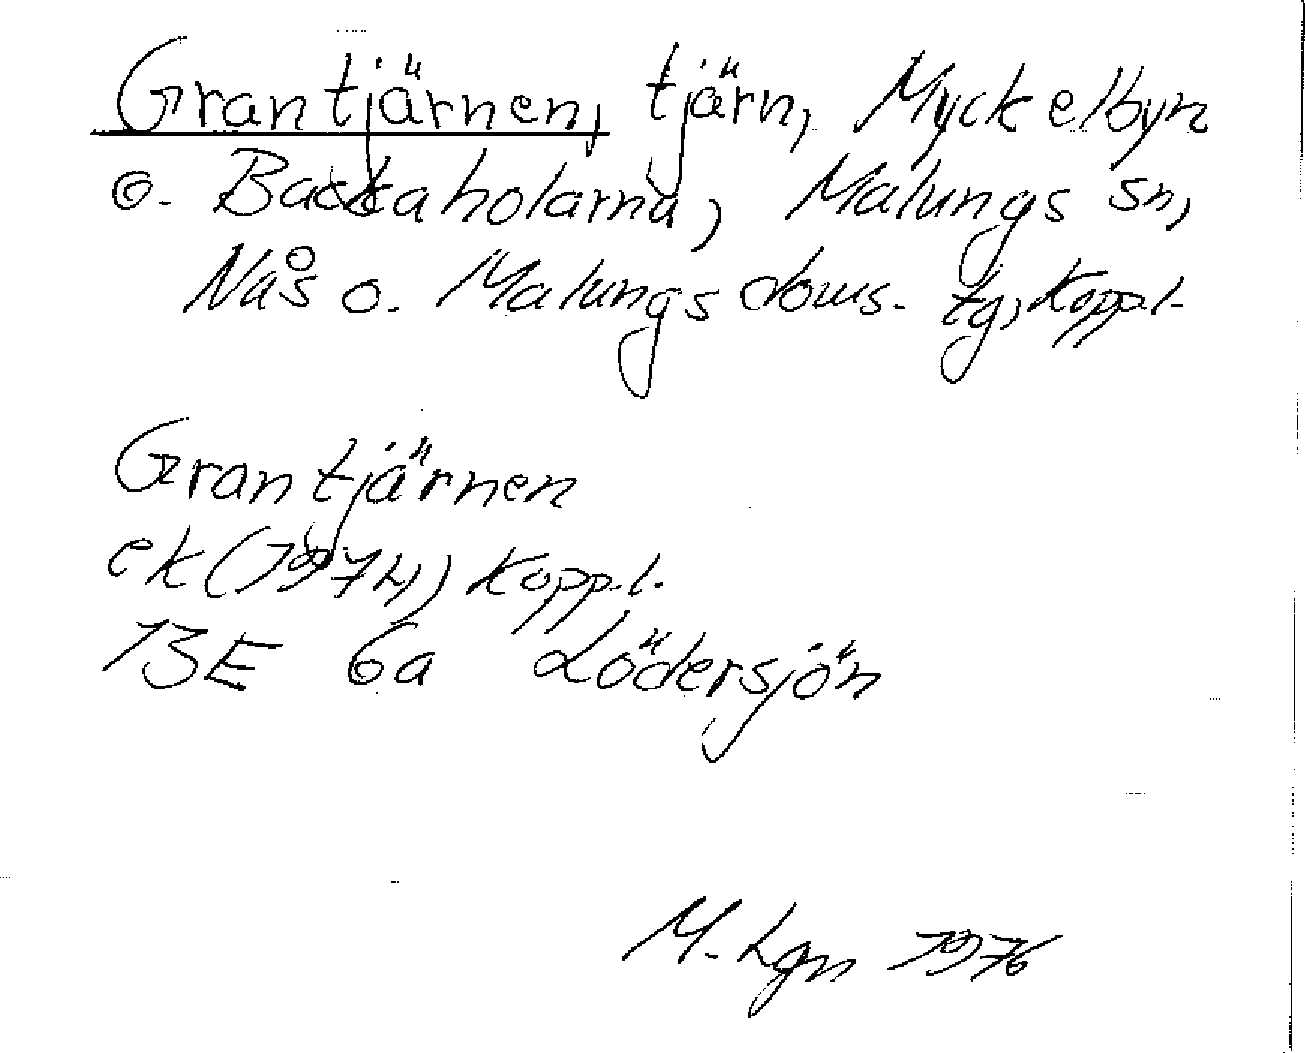 Grantjärnen, tjärn, Myckelbyn
o. Backaholarna, Malungs sn,
Nås o. Malungs doms. tg, Koppl.
Grantjärnen
ek (1974) Kopp.l.
13E 6a Lödersjön
M. Lgn 1976